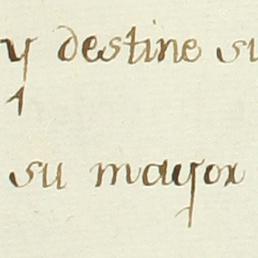 y destine su
su mayor